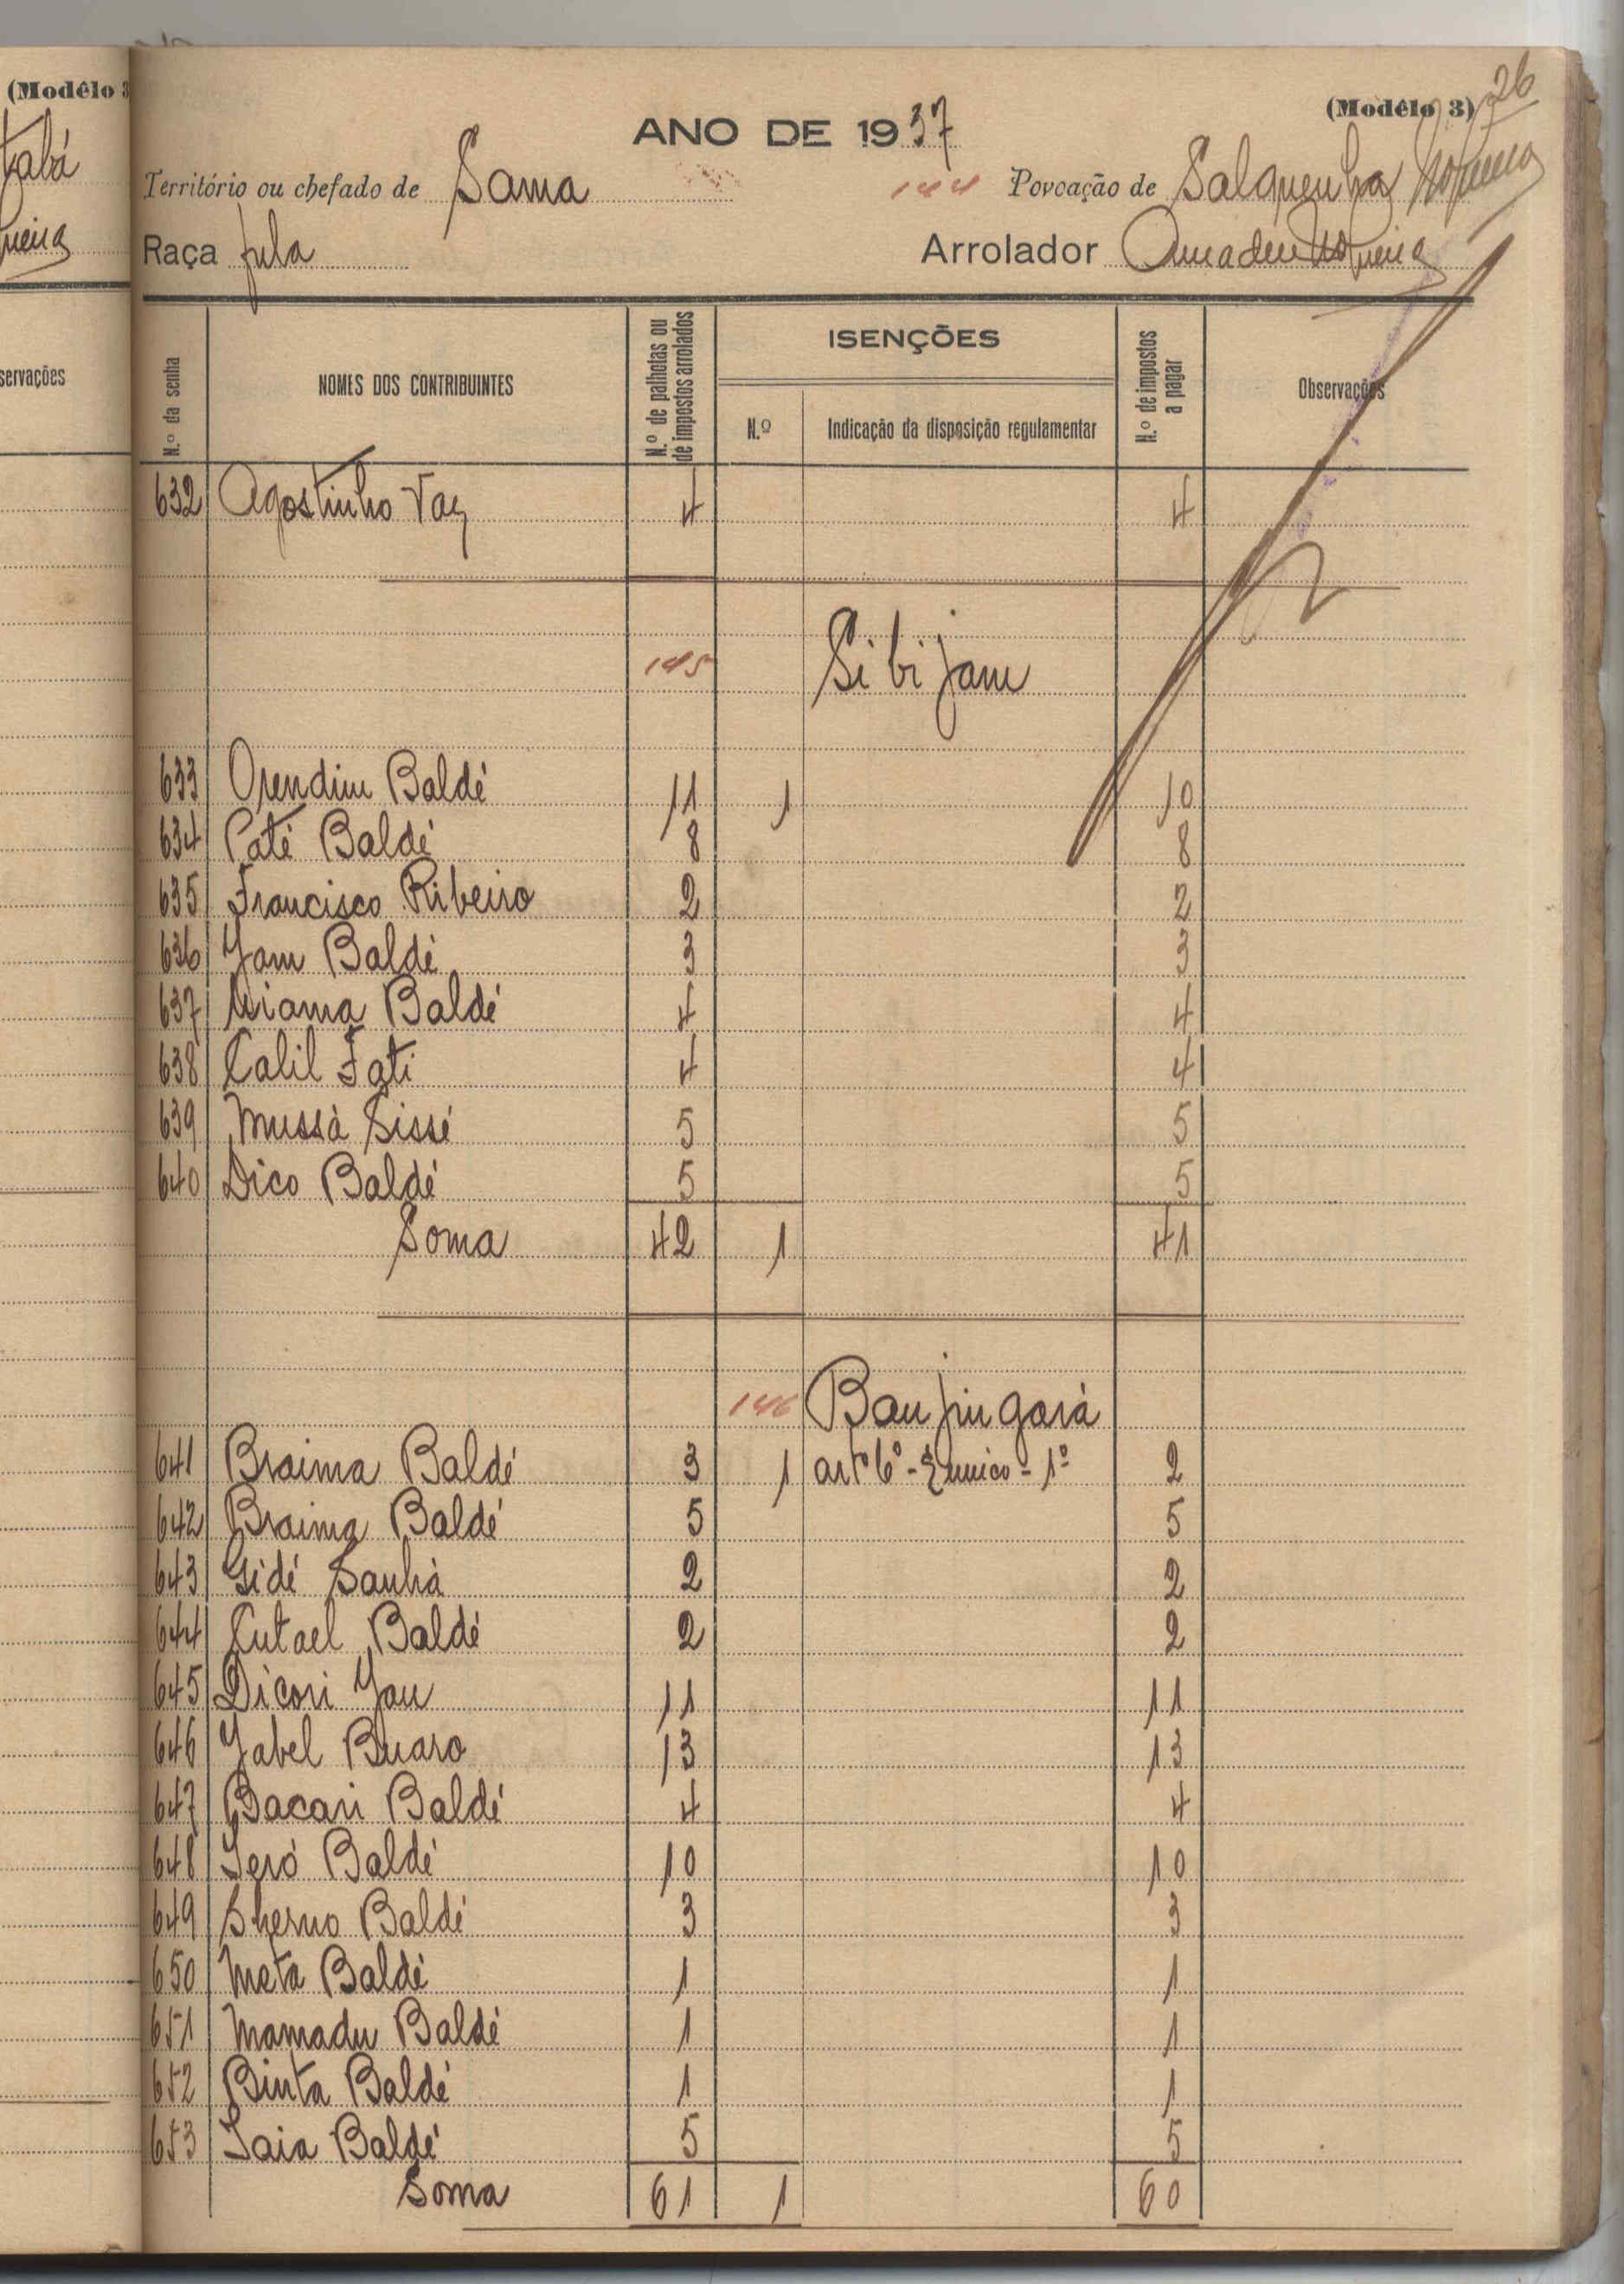 (Modêlo 3
tabá
servações
26
(Modêlo 3)
ANO DE 1937
Território ou chefado de Sama 144 Povoação de Salquenha
Raça fula Arrolador Amadeu Nogueira
N.º da senha NOMES DOS CONTRIBUINTES N.º de palhotas ou de impostos arrolados ISENÇÕES N.º de impostos a pagar Observações
N.º Indicação da disposição regulamentar
632 Agostinho Vaz 4 4
145 Sibijam
633 Orendim Baldé 11 1 10
634 Paté Baldé 8 8
635 Francisco Ribeiro 2 2
636 Yam Baldé 3 3
637 Niama Baldé 4 4
638 Calil Fati 4 4
639 Mussà Sissé 5 5
640 Dico Baldé 5 5
Soma 42 1 41
146 Banjingará
641 Braima Baldé 3 1 artº 6º - § unico - 1º 2
642 Braima Baldé 5 5
643 Gidé Sanhà 2 2
644 Cutael Baldé 2 2
645 Dicori Jau 11 11
646 Yabel Buaro 13 13
647 Bacari Baldé 4 4
648 Ieró Baldé 10 10
649 Sherno Baldé 3 3
650 Meta Baldé 1 1
651 Mamadu Baldé 1 1
652 Binta Baldé 1 1
653 Iaia Baldé 5 5
Soma 61 1 60